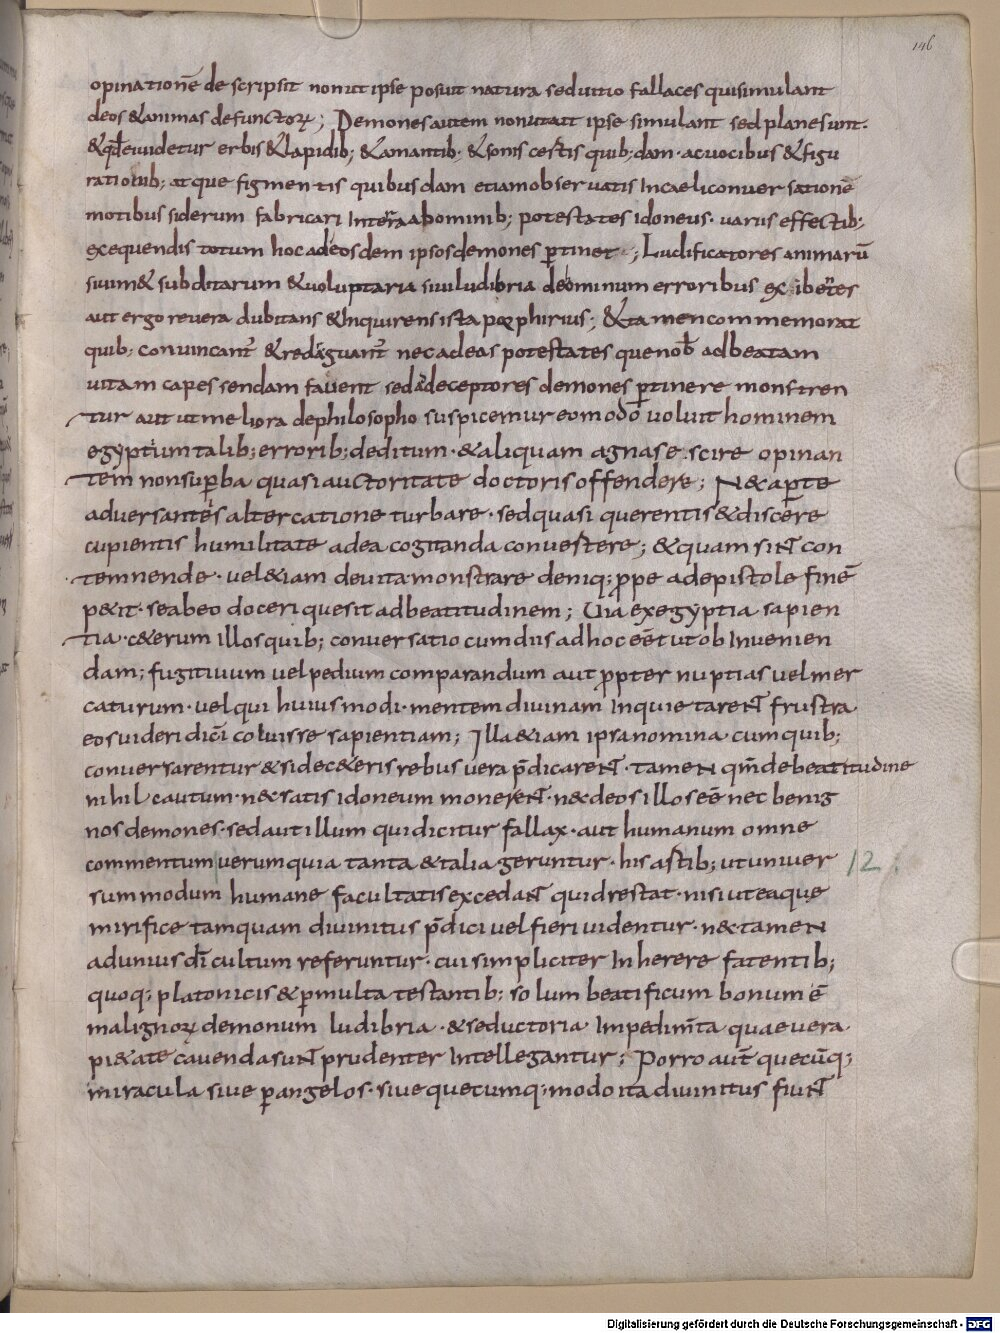 146
opinationē de scripsit non ut ipse posuit natura sed uitio fallaces qui simulant
deos & animas defunctoꝝ; Demones autem non ut ait ipse simulant sed plane sunt.
& qđ ei uidetur erbis & lapidib; & amantib· & sonis certis quib;dam · ac uocibus & figu
rationib; atque figmentis quibusdam etiam obseruatis In caeli conuersationē
motibus siderum fabricari In terra abominib; potestates idoneus · uariis effectib;
exequendis totum hoc ad eosdem ipsos demones ꝑtinet ; Ludificatores animarū
siuim& subditarum & uoluptaria siui ludibria de hominum erroribus exibentes
aut ergo reuera dubitans & Inquirens ista porphirius; & tamen commemorat
quib; conuincant̃ & redarguant̃ nec ad eas potestates que nob̃ ad beatam
uitam capessendam fauent sed ad deceptores demones ꝑtinere monstren
tur aut ut meliora de philosopho suspicemur eo modo uoluit hominem
egyptium talib; errorib; deditum · & aliquam agna se scire opinan
tem non suꝑba quasi auctoritate doctoris offendere; N& aꝑte
aduersantes altercatione turbare · sed quasi querentis & discere
cupientis humilitate ad ea cogitanda conuertere; & quam siNt con
temnende · uel &iam deuita monstrare deniq; ꝓpe ad epistole finē
p&it · se ab eo doceri que sit ad beatitudinem; Uia ex egyptia sapien
tia · c&erum illos quib; conuersatio cum diis ad hoc eēt ut ob Inuenien
dam; fugitiuum uel pedium comparandum aut ꝓpter nuptias uel mer
caturum · uel qui huiusmodi · mentem diuinam InquietareNt frustra
eos uideri dicī coluisse sapientiam; Illa &iam ipsa nomina cum quib;
conuersarentur & si de c&eris rebus uera p̄dicareNt · tameN qm̄ de beatitudine
nihil cautum · n& satis idoneum mone reNt · n& deos illos eē nec benig
nos demones · sed aut illum qui dicitur fallax · aut humanum omne
commentum uerum quia tanta & talia geruntur · his astib; ut uniuer
sum modum humane facultatis excedaNt quid restat · nisi ut ea que
mirifice tamquam diuinitus p̄dici uel fieri uidentur · n& tameN
ad unius dī cultum referuntur · cui simpliciter Inherere fatentib;
quoq; platonicis & ꝑmulta testantib; solum beatificum bonum ē
malignoꝝ demonum ludibria · & seductoria Impedim̄ta quae uera
pi&ate cauenda suNt prudenter Intellegantur; Porro aut̃ quecūq;
miracula siue ꝑ angelos · siue quecumq; modo ita diuinitus fiuNt
12
Digitalisierung gefördert durch die Deutsche Forschungsgemeinschaft - DFG